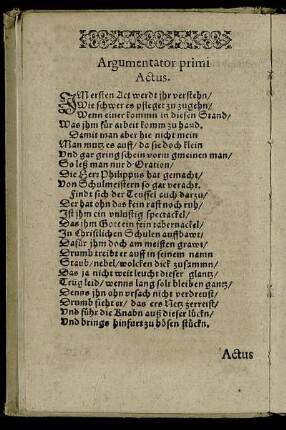 Argumentator primi
Actus.
IM ersten Act werdt jhr verstehn/
Wie schwer es pfleget zu zugehn/
Wenn einer kommn in diesen Stand/
Was jhm für arbeit komm zu hand.
Damit man aber hie nicht mein
Man mutz es auff/ da sie doch klein
Vnd gar gring schein vorm gmeinen man/
So leß man nur d'Oration/
Die Herr Philippus hat gemacht/
Von Schulmeistern so gar veracht.
Findt sich der Teuffel auch darzu/
Der hat ohn das kein rast noch ruh/
Ist jhm ein vnlustig spectackel/
Das jhm Gott ein fein tabernackel/
In Christlichen Schulen auffbawt/
Dafür jhm doch am meisten grawt/
Drumb treibt er auff in seinem namn
Staub/ nebel/ wolcken dick zusamn/
Das ja nicht weit leucht dieser glantz/
Trug leid/ wenns lang solt bleiben gantz/
Denns jhn ohn vrsach nicht verdreust/
Drumb sieht er/ das ers Netz zerreist/
Vnd führ die Knabn auß dieser lückn/
Vnd brings hinfurt zu bösen stückn.
Actus